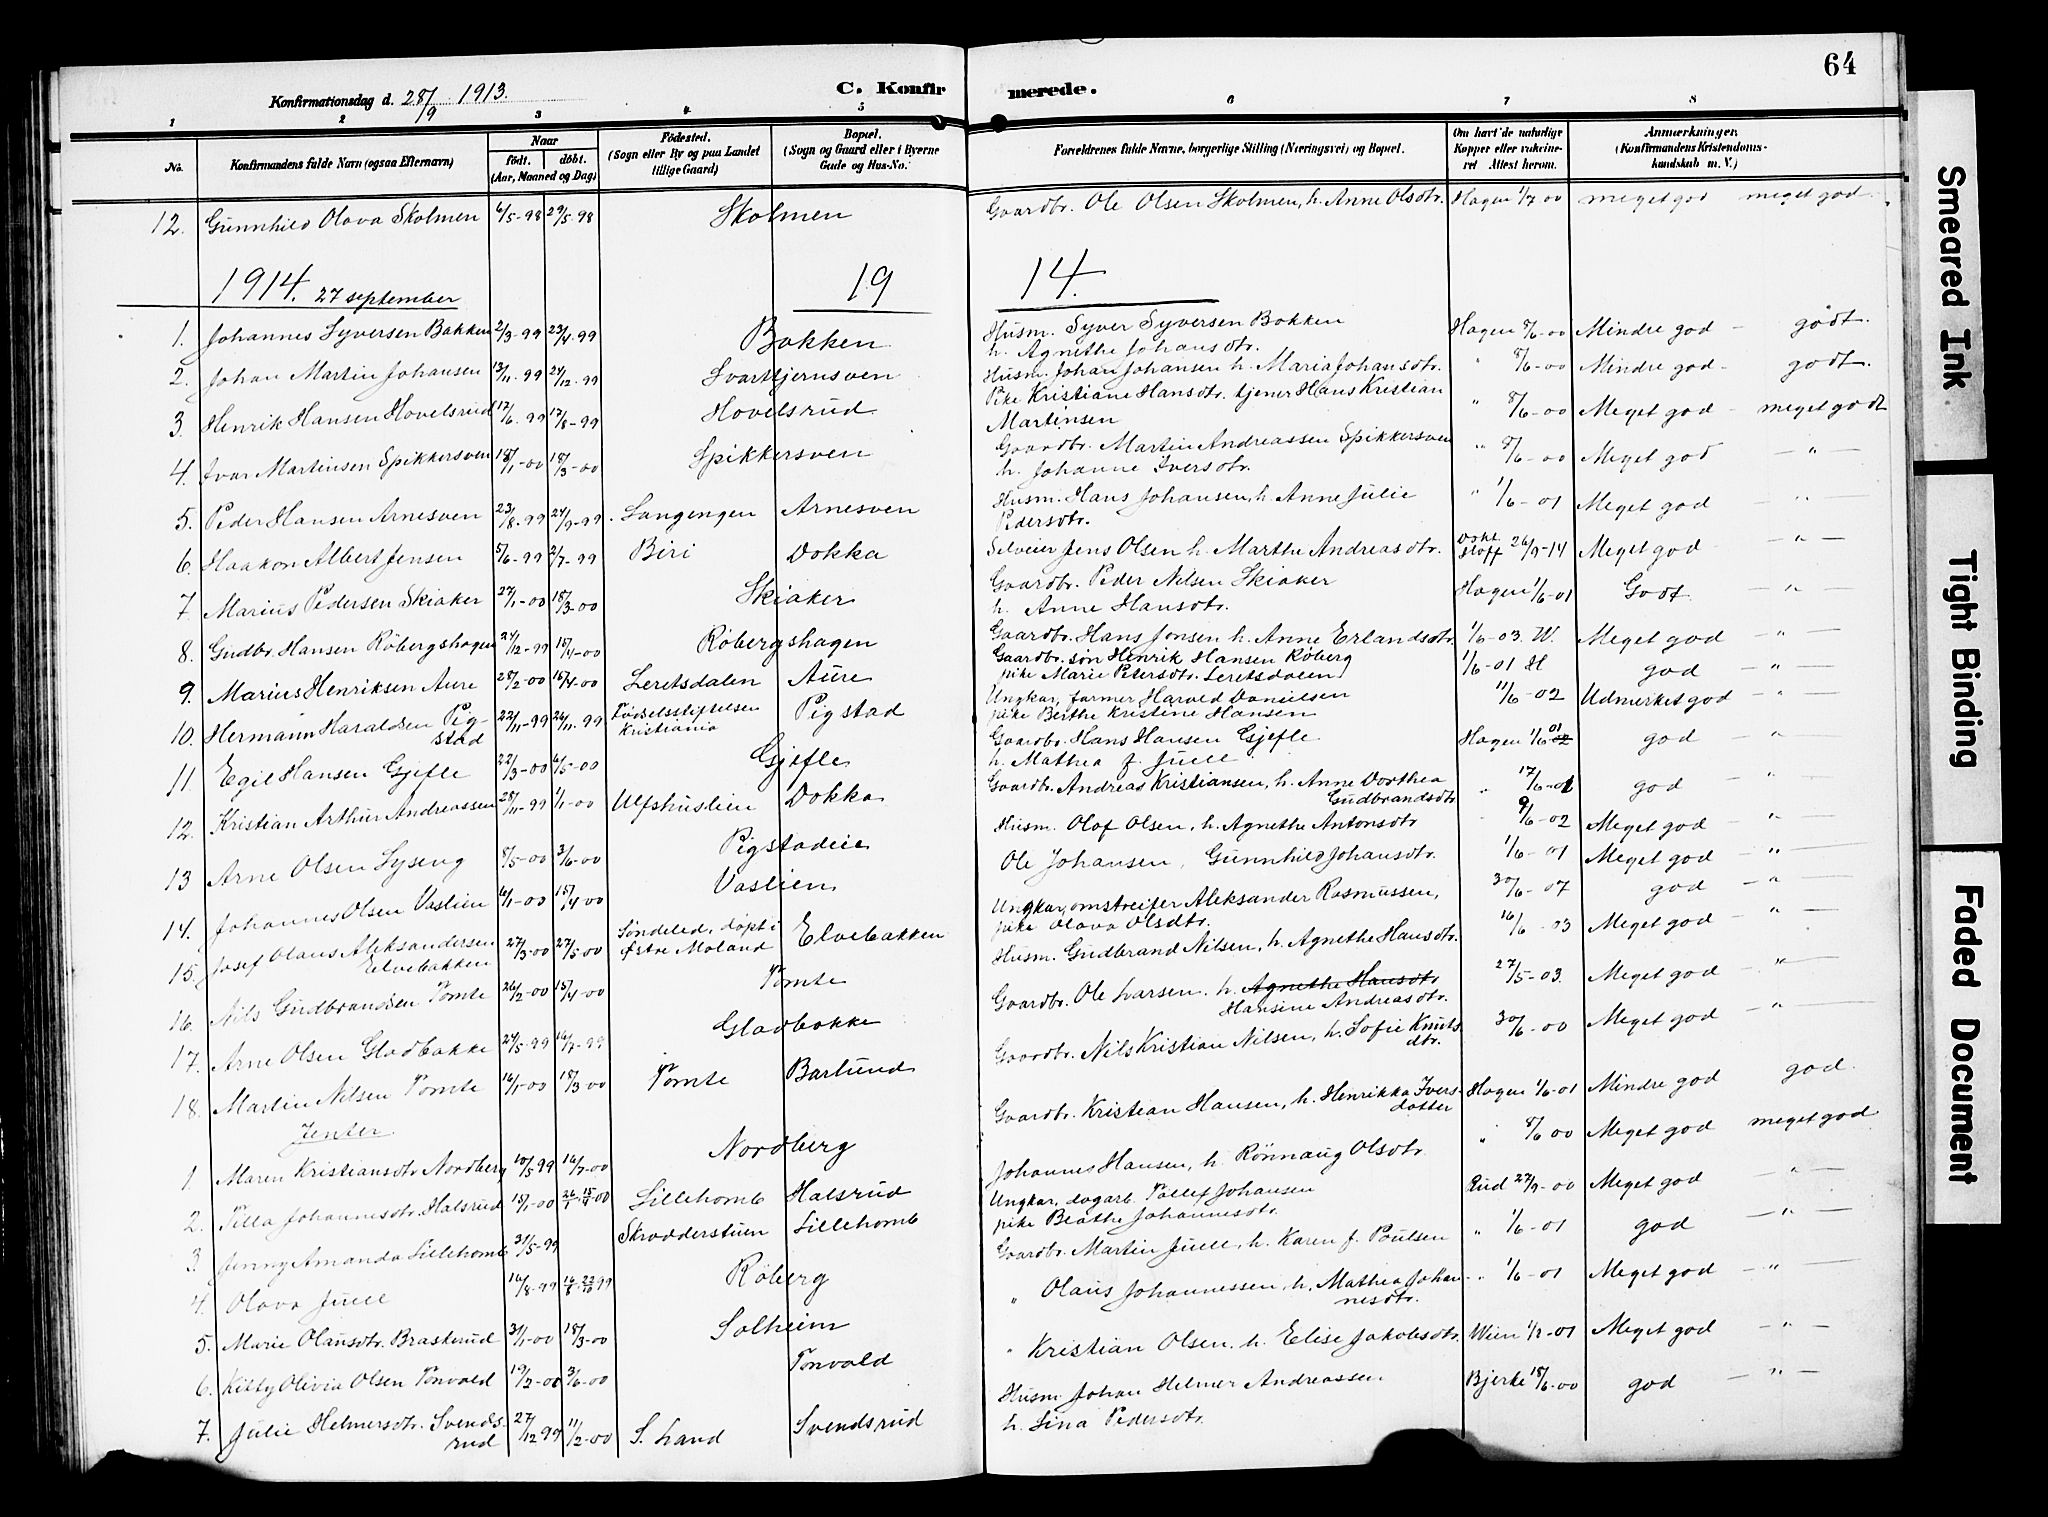 64
Konfirmationsdag d. 28/9 1913.
C. Konfirmerede.
1 2 3 4 5 6 7 8
No. Konfirmandens fulde Navn (ogsaa Efternavn) Naar født. døbt. (Aar, Maaned og Dag) Fødested. (Sogn eller By og paa Landet tillige Gaard) Bopæl. (Sogn og Gaard eller i Byerne Gade og Hus-No. Forældrenes fulde Navne, borgerlige Stilling (Næringsvei) og Bopæl. Om havt de naturlige Kopper eller vakcineret Attest herom. Anmerkninger. (Konfirmandens Kristendomskundskab m. V.)
12. Gunnhild Olava Skolmen 6/5-98 29/5-98 Skolmen Gaardbr. Ole Olsen Skolmen, h. Anne Olsdtr. Hagen 1/7 00 meget god meget god
1914. 27 september 19 14.
1. Johannes Syversen Bakken 2/3-99 23/4-99 Bakken Husm. Syver Syversen Bakken h. Agnethe Johansdtr. Hagen 8/6-00 Mindre god - godt.
2. Johan Martin Johansen 13/11-99 24/12-99 Svarttjernsven Husm. Johan Johansen h. Maria Johansdtr. " 8/6-00 Mindre god - godt.
3. Henrik Hansen Hovelsrud 12/6 99 17/8-99 Hovelsrud Pike Kristiane Hansdtr. tjener Hans Kristian Martinsen " 8/6-00 Meget god - meget godt
4. Ivar Martinsen Spikkersven 18/1-00 18/3-00 Spikkersven Gaardbr. Martin Andreassen Spikkersven h. Johanne Iversdtr. " 8/6-00 Meget god — " —
5. Peder Hansen Arnesven 23/8-99 24/9-99 Langengen Arnesven Husm. Hans Johansen, h. Anne Julie Pedersdtr. " 1/6-01 Meget god — " —
6. Haakon Albert Jensen 5/6-99 2/7-99 Biri Dokka Selveier Jens Olsen h. Marthe Andreasdtr. 26/9-14 Meget god — " —
7. Marius Pedersen Skiaker 27/1-00 18/3-00 Skiaker Gaardbr. Peder Nilsen Skiaker h. Anne Hansdtr. Hagen 1/6-01 Godt. — " —
8. Gudbr. Hansen Röbergshagen 24/12-99 15/4-00 Röbergshagen Gaardbr. Hans Jonsen h. Anne Erlandsdtr. 1/6-03. W. Meget god — " —
9. Marius Henriksen Aure 28/2-00 16/4-00 Leretsdalen Aure Gaardbr. søn Henrik Hansen Röberg pike Marie Petersdtr. Leretsdalen 1/6-01 H god — " —
10. Hermann Haraldsen Pigstad 22/11-99 26/11.99 Fødselsstiftelsen Kristiania Pigstad Ungkar, farmer Harald Danielsen pike Berthe Kristine Hansen 11/6-02 Udmerket god — " —
11 Egil Hansen Gjefle 22/3-00 6/5-00 Gjefle Gaardbr. Hans Hansen Gjefle h. Mathea f. Juell Hagen 1/6 01 god — " —
12. Kristian Arthur Andreassen 28/11-99 1/1-00 Ulfshuslien Dokka Gaardbr. Andreas Kristiansen, h. Anne Dorthea Gudbrandsdtr. " 17/6-01 god "
13 Arne Olsen Lyseng 8/5-00 3/6-00 Pigstadeie Husm. Olof Olsen, h. Agnethe Antonsdtr 9/6-02 Meget god — " —
14. Johannes Olsen Vaslien 6/1-00 15/4-00 Vaslien Ole Johansen, Gunnhild Johansdtr. 1/6-01 Meget god — " —
15. Josef Olaus Aleksandersen Elvebakken 27/3-00 27/5-00 Søndeled, døpt i Østre Moland Elvebakken Ungkar, omstreifer Aleksander Rasmussen, pike Olava Olsdtr. 30/6-07 god — " —
16. Nils Gudbrandsen Tomte 26/2-00 15/4-00 Tomte Husm. Gudbrand Nilsen, h. Agnethe Hansdtr. 16/6-03 Meget god — " —
17. Arne Olsen Gladbakke 24/5-99 16/7-99 Gladbakke Gaardbr. Ole Larsen. h. Agnethe Hansdtr Hansine Andreasdtr. 27/5-03. Meget god — " —
18. Martin Nilsen Tomte 16/1-00 18/3-00 Tomte Barlund Gaardbr. Nils Kristian Nilsen, h. Sofie Knutsdtr. 30/6-00 Meget god — " —
Jenter
1. Maren Kristiansdtr Nordberg 10/5 99 16/7-00 Nordberg Gaardbr. Kristian Hansen, h. Henrikka Iversdatter Hagen 1/6-01 Mindre god god.
2. Tilla Johannesdtr. Halsrud 15/1-00 Lillehomb Halsrud Johannes Hansen, h. Rönnaug Olsdtr. " 8/6 00 Meget god meget god
3. Jenny Amanda Lillehomb 31/5-99 Skradderstuen Lillehomb Ungkar, dagarb. Tollef Johansen pike Beathe Johannesdtr. Rud 27/9-00 Meget god — " —
4. Olava Juell 16/8-99 Röberg Gaardbr. Martin Juell, h. Karen f. Poulsen " 1/6-01 god — " —
5. Marie Olausdtr. Braskerud 31/1-00 18/3-00 Solheim " Olaus Johannessen, h. Mathea Johannesdtr. " 1/6-01 Meget god — " —
6. Kitty Olivia Olsen Tonvald 19/2-00 3/6-00 Tonvald " Kristian Olsen. h. Elise Jakobsdtr. Wien 1/2-01 Meget god — " —
7. Julie Helmersdtr. Svendsrud 27/12 99 11/2-00 S. Land Svendsrud Husm Johan Helmer Andreassen h. Lina Pedersdtr. Bjerke 18/6-00 god — " —
Smeared Ink
Tight Binding
Faded Document